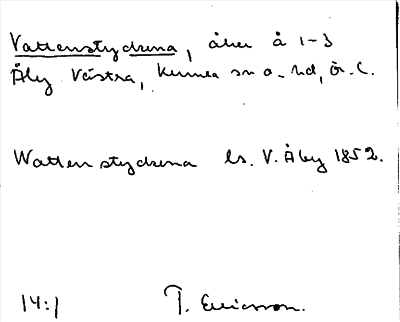 Vattenstyckena, åker å 1-3
Åby Västra, Kumla sn o. hd, Ör. l.
Wattenstyckena ls. V. Åby 1852.
14:1 T. Ericsson.